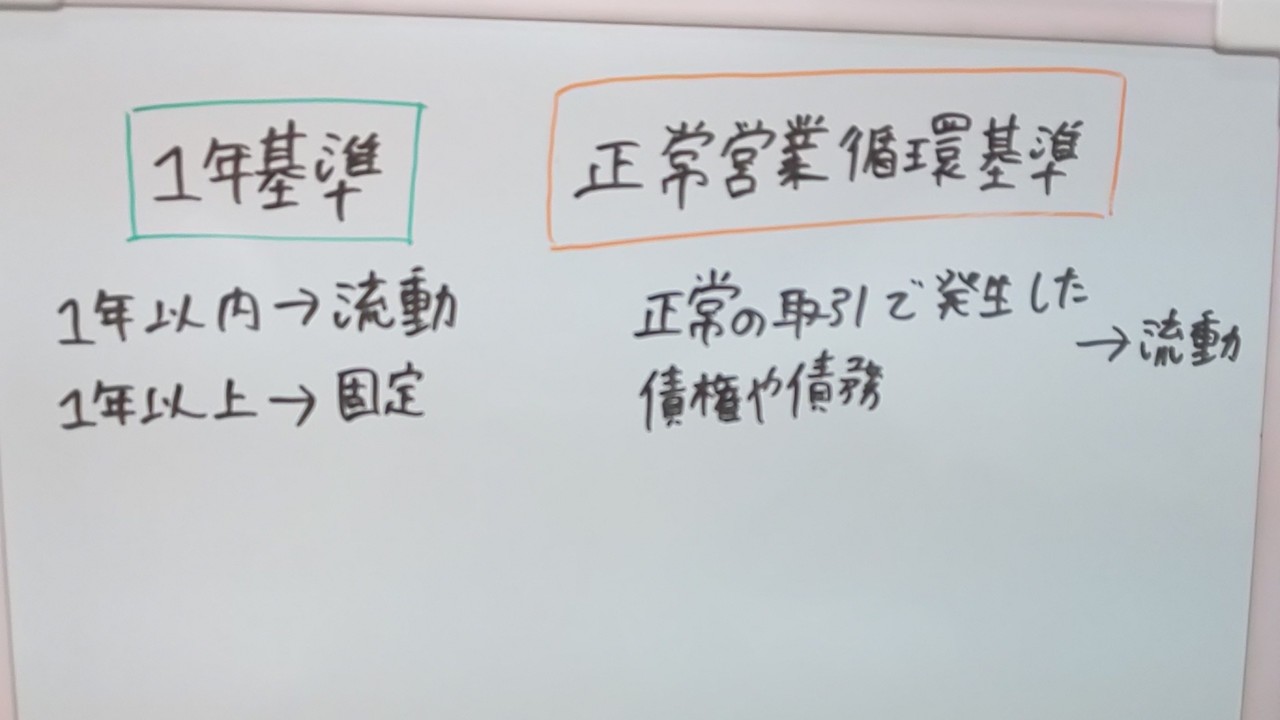 1年基準
1年以内→流動
1年以上→固定
正常営業循環基準
正常の取引で発生した
債権や債務
→流動